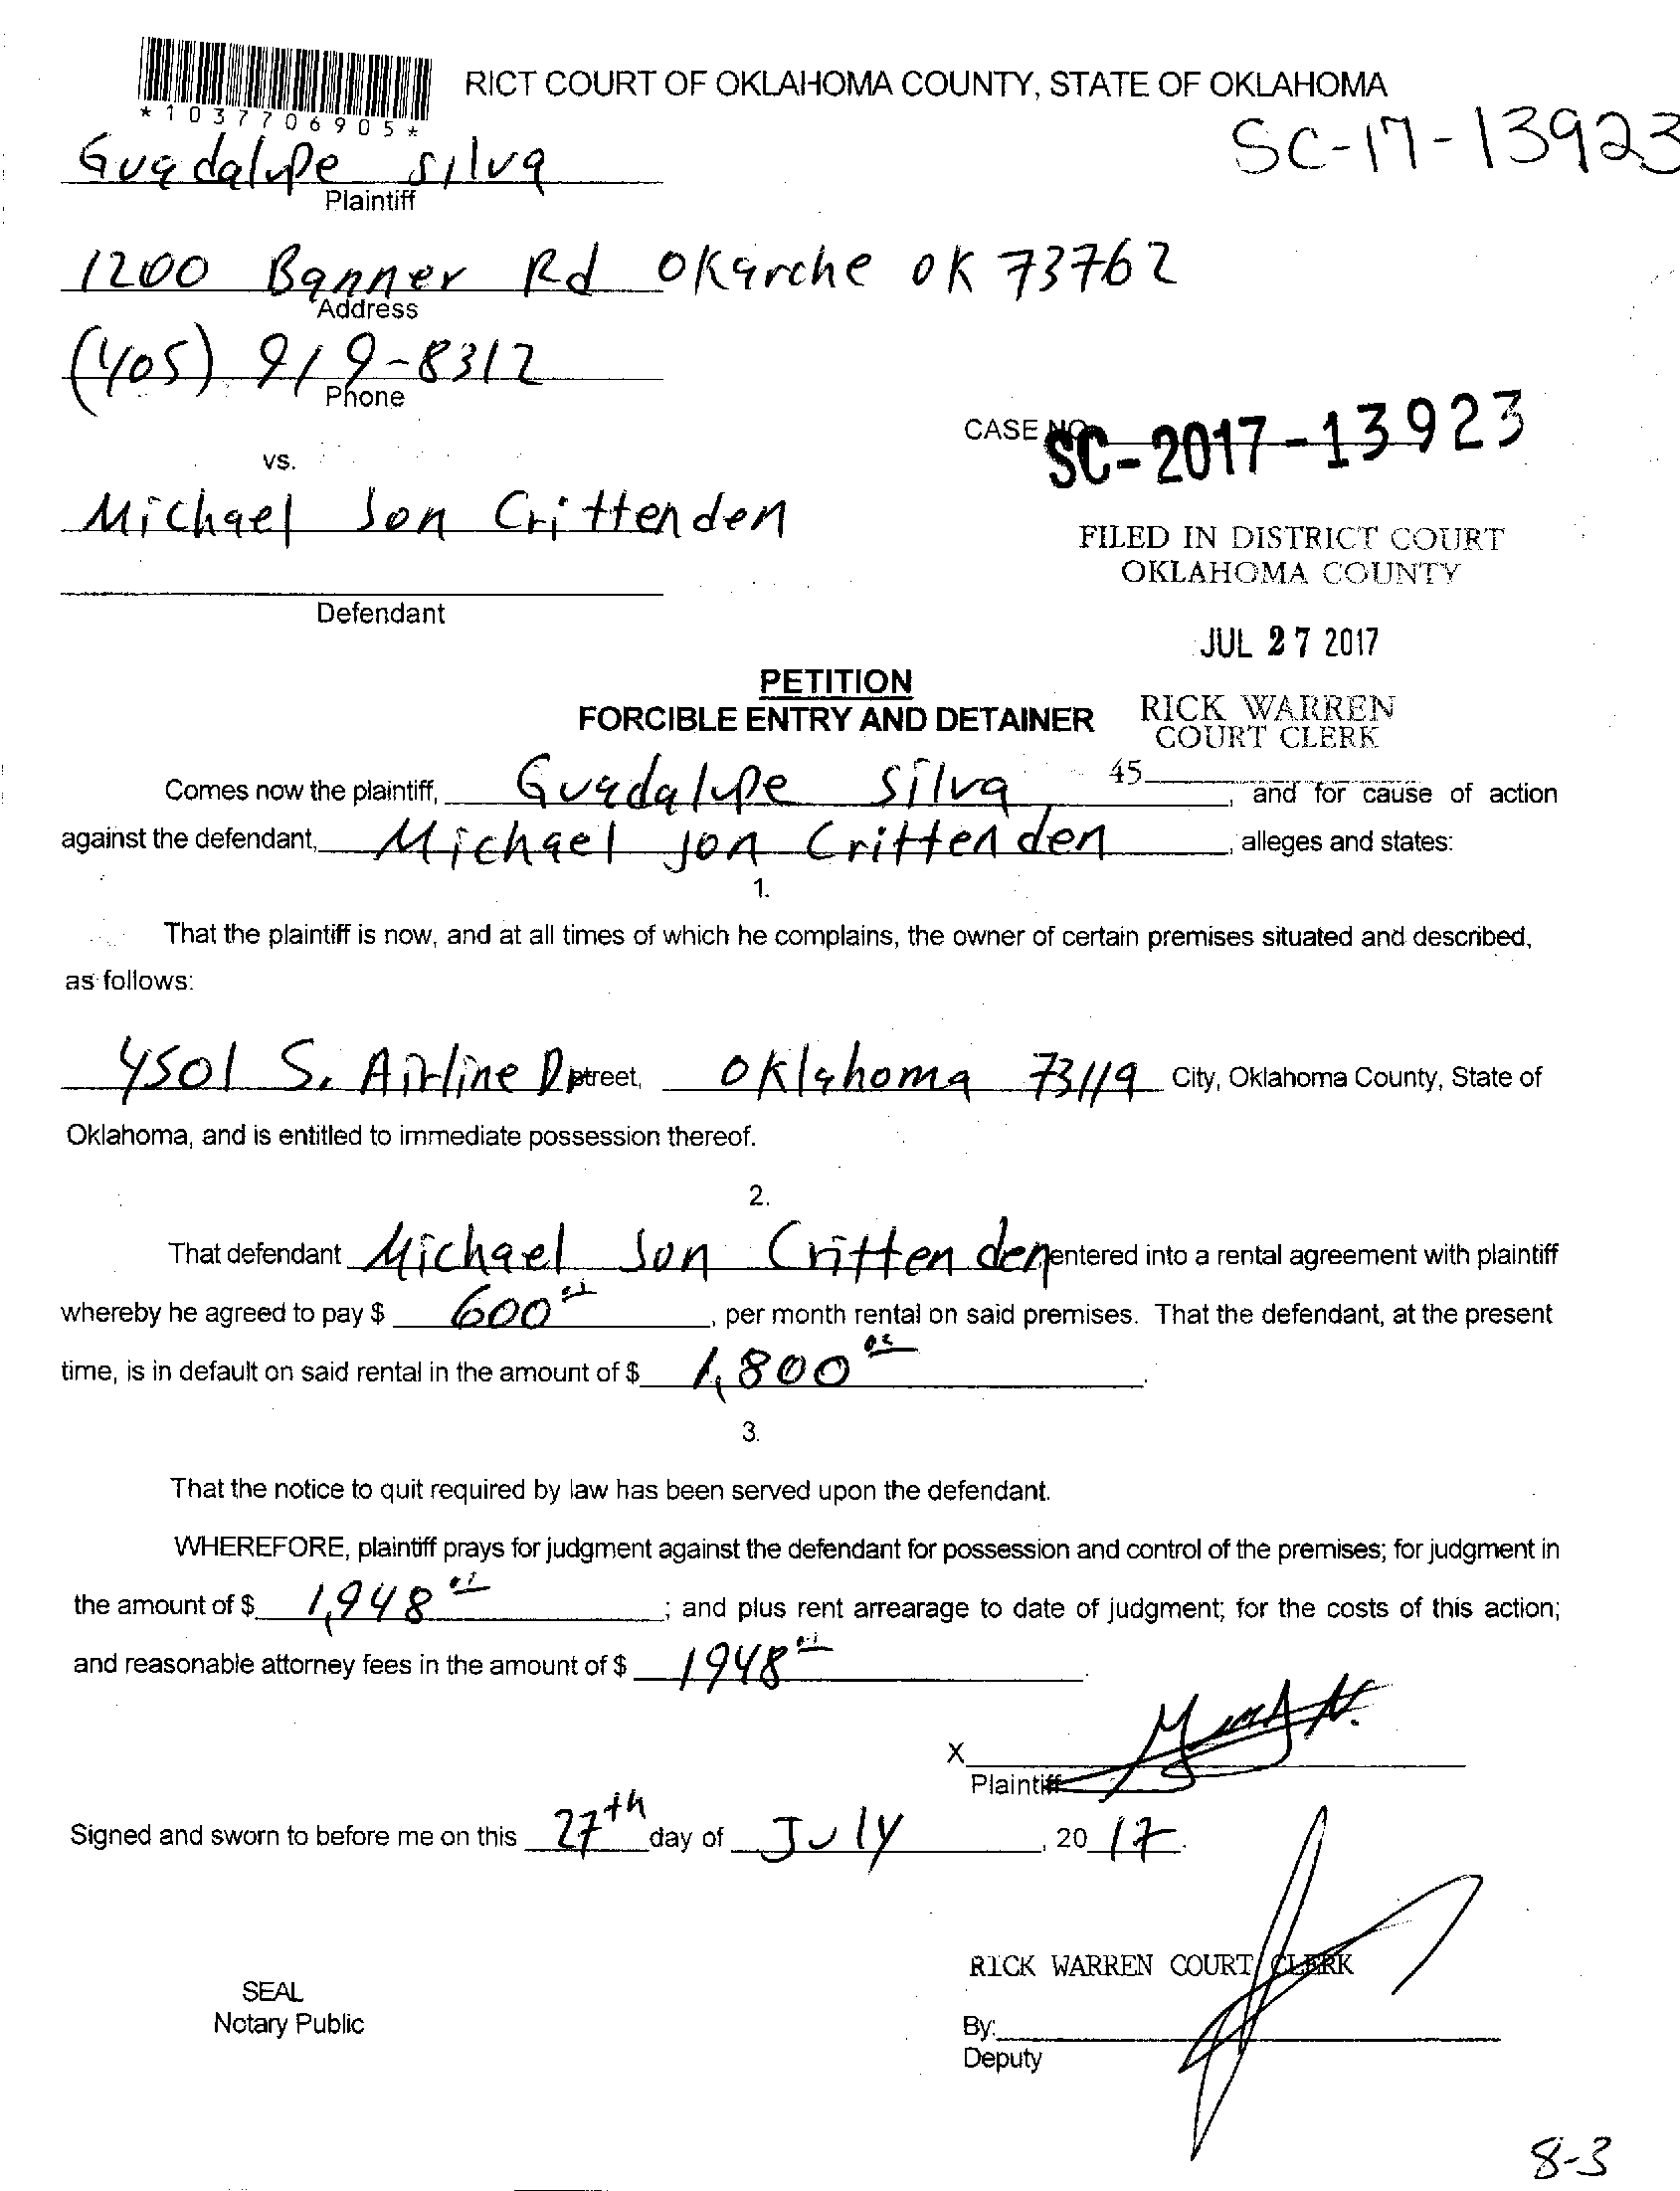 RICT COURT OF OKLAHOMA COUNTY, STATE OF OKLAHOMA
*1037706905*
SC-17-13923
Guadalupe Silva
Plaintiff
1200 Banner Rd Okarche OK 73762
Address
(405) 919-8312
Phone
CASE NO. SC-2017-13923
vs.
Michael Jon Crittenden
FILED IN DISTRICT COURT
OKLAHOMA COUNTY
Defendant
JUL 27 2017
PETITION
FORCIBLE ENTRY AND DETAINER
RICK WARREN
COURT CLERK
45
Comes now the plaintiff, Guadalupe Silva, and for cause of action
against the defendant, Michael Jon Crittenden, alleges and states:
1.
That the plaintiff is now, and at all times of which he complains, the owner of certain premises situated and described,
as follows:
4501 S. Airline Dr street, Oklahoma 73119 City, Oklahoma County, State of
Oklahoma, and is entitled to immediate possession thereof.
2.
That defendant Michael Jon Crittenden entered into a rental agreement with plaintiff
whereby he agreed to pay $ 600, per month rental on said premises. That the defendant, at the present
time, is in default on said rental in the amount of $ 1,800.
3.
That the notice to quit required by law has been served upon the defendant.
WHEREFORE, plaintiff prays for judgment against the defendant for possession and control of the premises; for judgment in
the amount of $ 1,948; and plus rent arrearage to date of judgment; for the costs of this action;
and reasonable attorney fees in the amount of $ 1948.
X
Plaintiff
Signed and sworn to before me on this 27th day of July, 20 17.
RICK WARREN COURT CLERK
SEAL
Notary Public
By:
Deputy
8-3